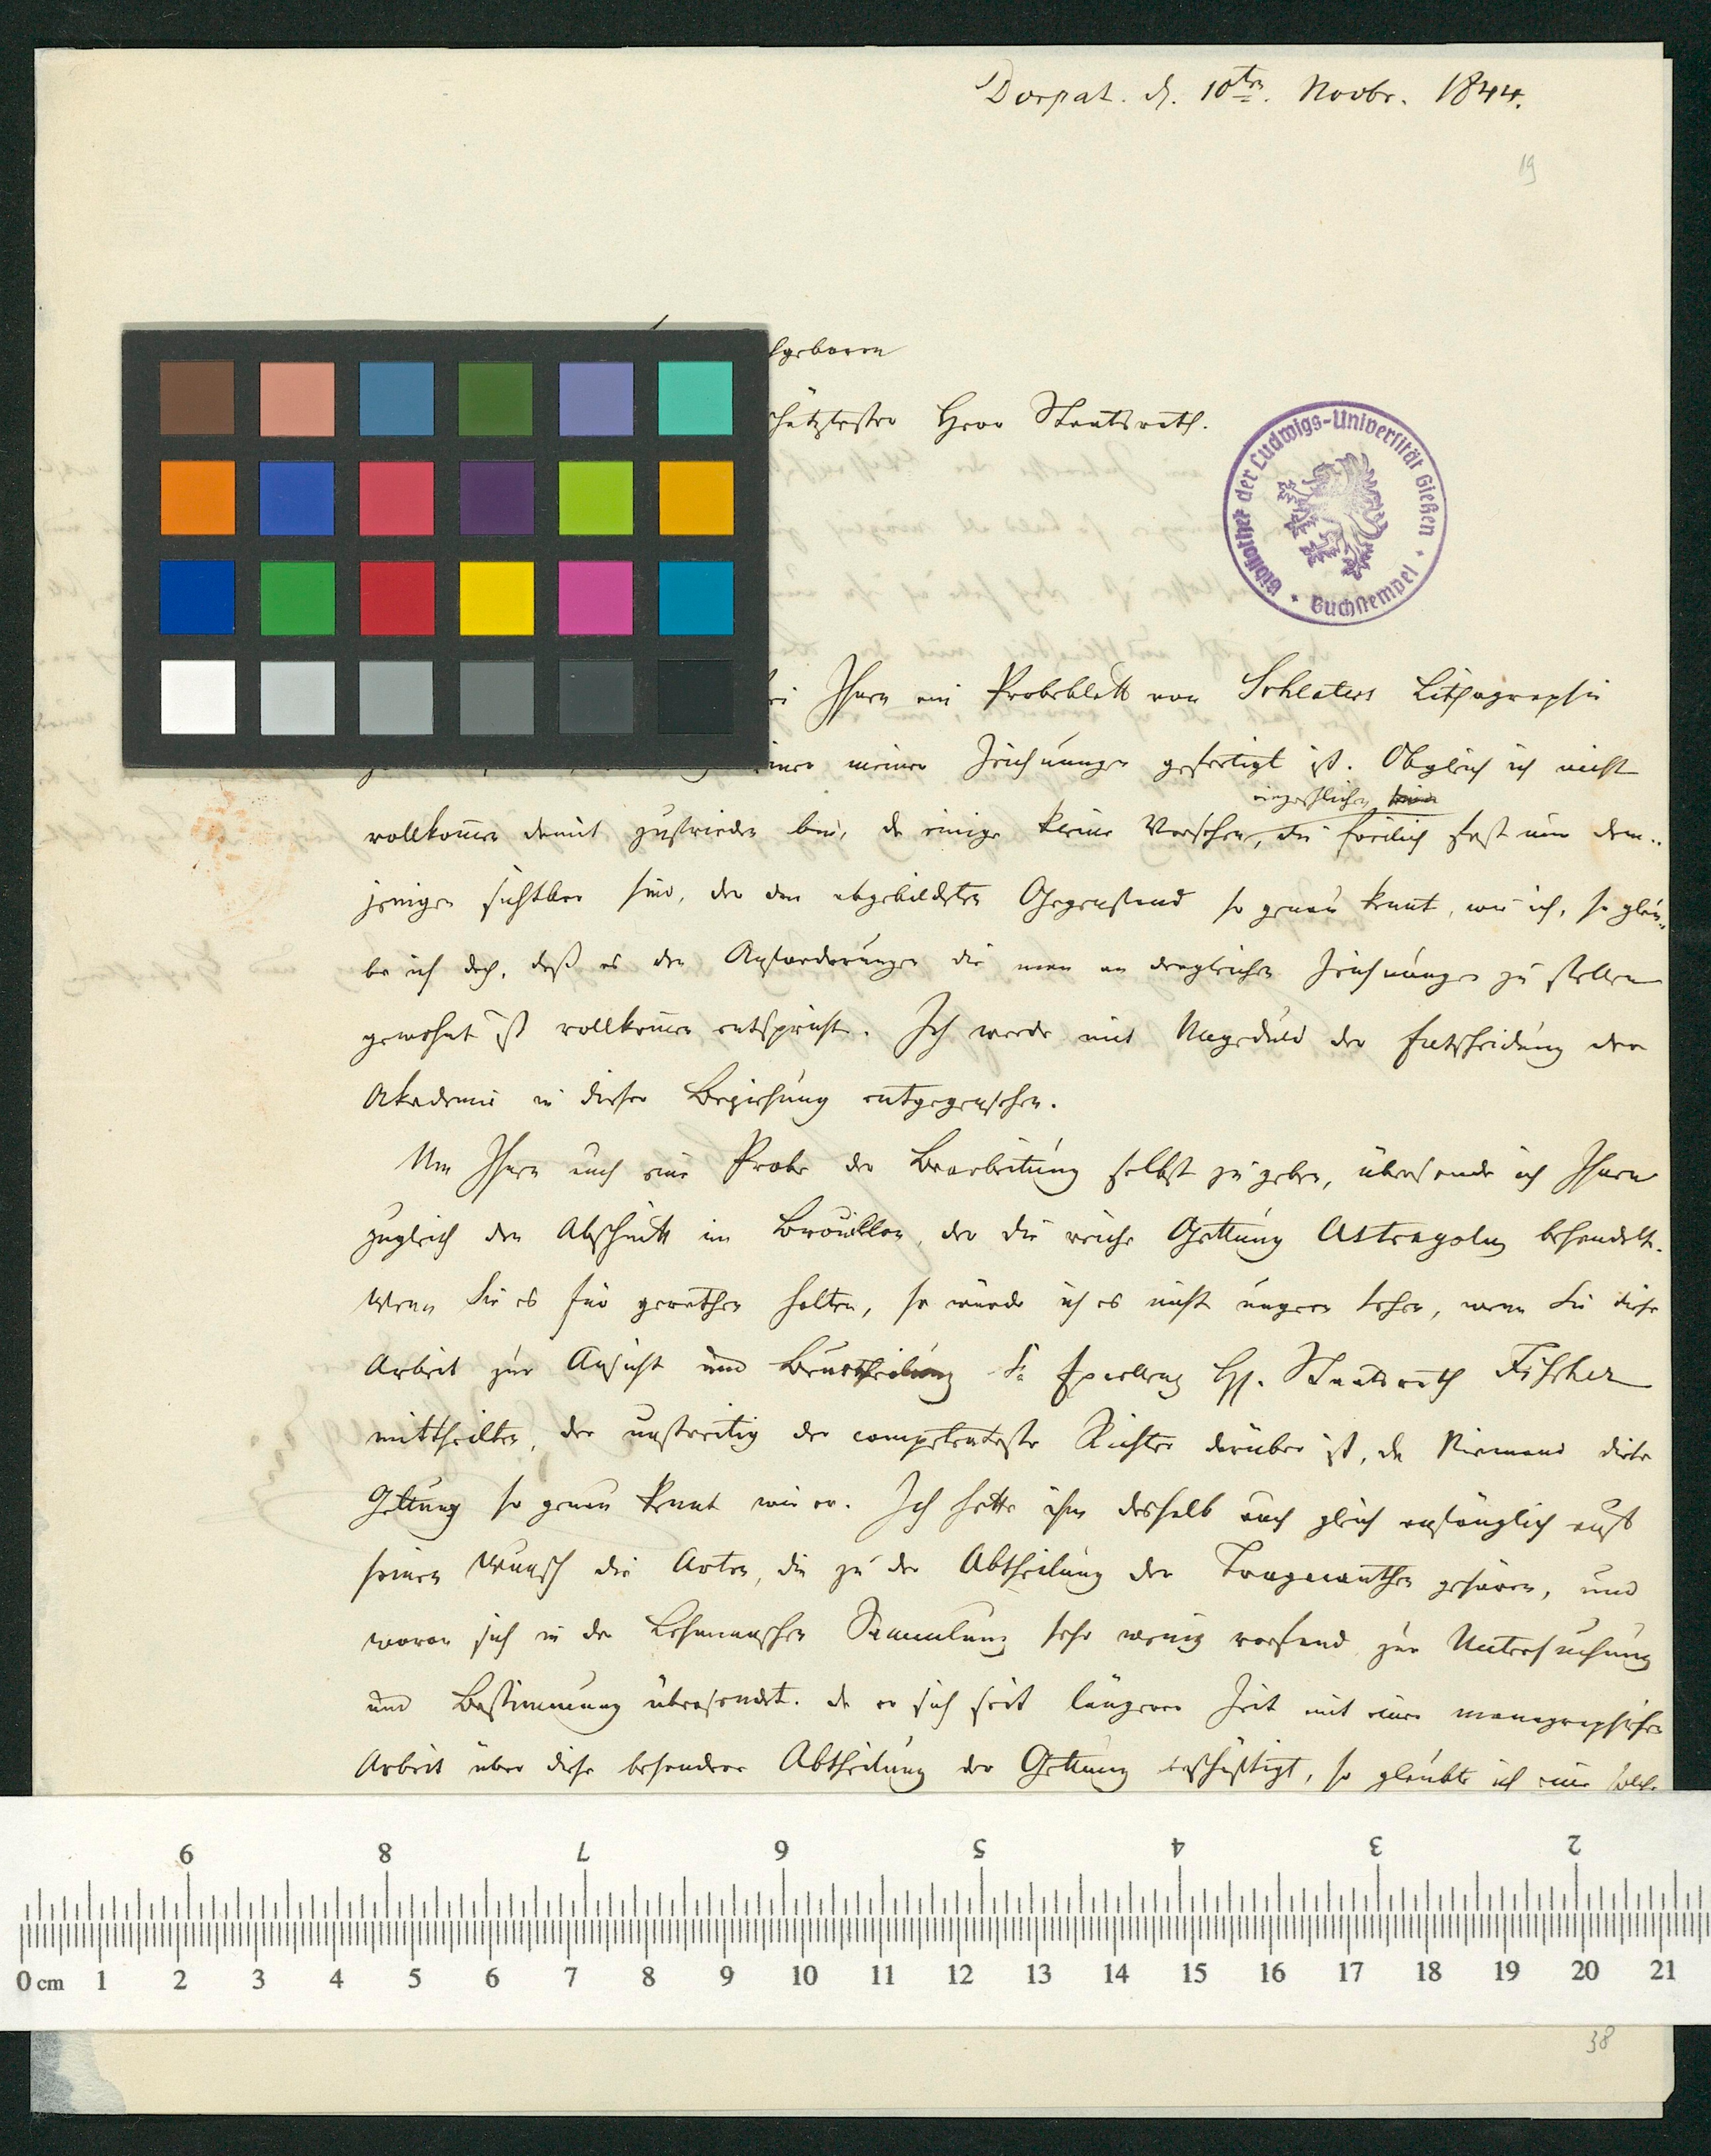 Dorpat. d. 10ten. Novbr. 1844.
19
hgeboren
schätztester Herr Staatsrath.
Bibliothek der Ludwigs-Universität Gießen
Buchstempel
bei Ihnen ein Probeblatt von Schlaters Lithographie
einer meiner Zeichnungen gefertigt ist. Obgleich ich nicht
eingeschlichen
vollkom̅en damit zufrieden bin, da einige kleine Versehen, die freilich fast nur dem-
jenigen sichtbar sind, der den abgebildeten Gegenstand so genau kennt, wie ich, so glau-
be ich doch, daß es den Anforderungen die man an dergleichen Zeichnungen zu stellen
gewohnt ist vollkom̅en entspricht. Ich werde mit Ungeduld der Entscheidung der
Akademie in dieser Beziehung entgegensehen.
Um Ihnen auch eine Probe der Bearbeitung selbst zu geben, übersende ich Ihnen
zugleich den Abschnitt im Brouillon, der die reiche Gattung Astragalus behandelt.
Wenn Sie es für gerathen halten, so würde ich es nicht ungern sehen, wenn Sie diese
Arbeit zur Ansicht und Beurtheilung Sr Excellenz H. Staatsrath Fischer
mittheilten, der unstreitig der competenteste Richter darüber ist, da Niemand diese
Gattung so genau kennt wie er. Ich hatte ihm deshalb auch gleich anfänglich auf
seinen Wunsch die Arten, die zu der Abtheilung der Tragacanthen gehören, und
wovon sich in der Lehmannschen Sammlung sehr wenig vorfand zur Untersuchung
und Bestimmung übersendet. da er sich seit längerer Zeit mit einer monographischen
Arbeit über diese besondere Abtheilung der Gattung beschäftigt, so glaubte ich eine solche
9 8 7 6 5 4 3 2
0 cm 1 2 3 4 5 6 7 8 9 10 11 12 13 14 15 16 17 18 19 20 21
38